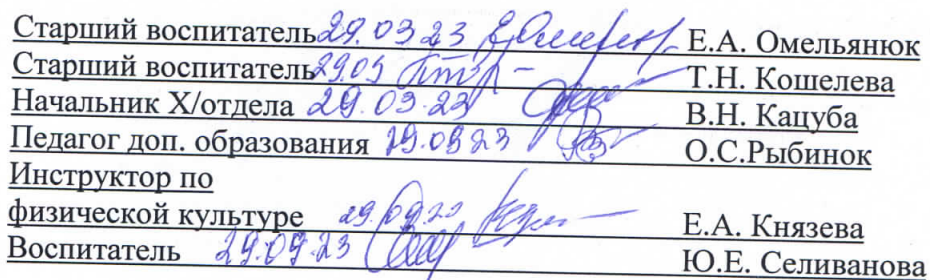 Старший воспитатель 29.03.23 Е.А. Омельянюк
Старший воспитатель 29.03 Т.Н. Кошелева
Начальник Х/отдела 29.03.23 В.Н. Кацуба
Педагог доп. образования О.С.Рыбинок
Инструктор по
физической культуре Е.А. Князева
Воспитатель 29.09.23 Ю.Е. Селиванова